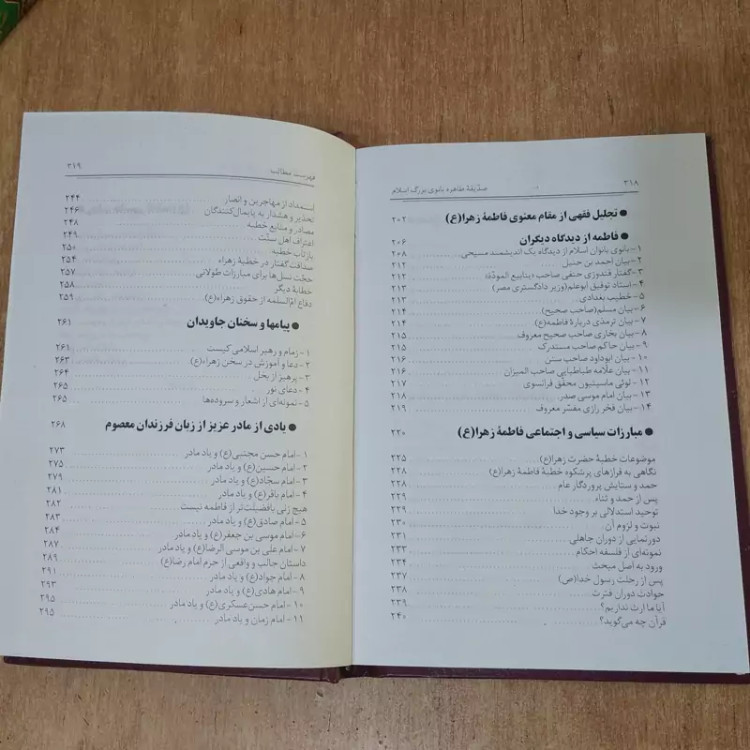 ۳۱۸ صدّیقهٔ طاهره بانوی بزرگ اسلام
● تجلیل فقهی از مقام معنوی فاطمهٔ زهرا(ع) ۲۰۲
● فاطمه از دیدگاه دیگران ۲۰۶
۱- بانوی بانوان اسلام از دیدگاه یک اندیشمند مسیحی ۲۰۸
۲- بیان احمد بن حنبل ۲۱۲
۳- گفتار قندوزی حنفی صاحب «ینابیع المودّة» ۲۱۲
۴- استاد توفیق ابوعلم (وزیر دادگستری مصر) ۲۱۳
۵- خطیب بغدادی ۲۱۳
۶- بیان مسلم (صاحب صحیح) ۲۱۴
۷- بیان ترمذی دربارهٔ فاطمه(ع) ۲۱۴
۸- بیان بخاری صاحب صحیح معروف ۲۱۵
۹- بیان حاکم صاحب مستدرک ۲۱۵
۱۰- بیان ابوداود صاحب سنن ۲۱۶
۱۱- بیان علّامه طباطبایی صاحب المیزان ۲۱۶
۱۲- لوئی ماسینیون محقّق فرانسوی ۲۱۷
۱۳- بیان امام موسی صدر ۲۱۸
۱۴- بیان فخر رازی مفسّر معروف ۲۱۹
● مبارزات سیاسی و اجتماعی فاطمهٔ زهرا(ع) ۲۲۰
موضوعات خطبهٔ حضرت زهرا(ع) ۲۲۵
نگاهی به فرازهای پرشکوه خطبهٔ فاطمهٔ زهرا(ع) ۲۲۸
حمد و ستایش پروردگار عام ۲۲۸
پس از حمد و ثناء ۲۲۹
توحید استدلالی بر وجود خدا ۲۲۹
نبوت و لزوم آن ۲۳۰
دورنمایی از دوران جاهلی ۲۳۱
نمونه‌ای از فلسفه احکام ۲۳۳
ورود به اصل مبحث ۲۳۵
پس از رحلت رسول خدا(ص) ۲۳۷
حوادث دوران فترت ۲۳۷
آیا ما ارث نداریم؟ ۲۳۹
قرآن چه می‌گوید؟ ۲۴۰
فهرست مطالب ۳۱۹
استمداد از مهاجرین و انصار ۲۴۴
تحذیر و هشدار به پایمال‌کنندگان ۲۴۶
مصادر و منابع خطبه ۲۴۸
اعتراف اهل سنّت ۲۴۹
بازتاب خطبه ۲۵۰
صداقت گفتار در خطبهٔ زهراء ۲۵۴
حجّت نسل‌ها برای مبارزات طولانی ۲۵۷
خطابهٔ دیگر ۲۵۸
دفاع امّ‌السلمه از حقوق زهراء(ع) ۲۵۹
● پیامها و سخنان جاویدان ۲۶۱
۱- زمام و رهبر اسلامی کیست ۲۶۱
۲- دعا و آموزش در سخن زهراء(ع) ۲۶۳
۳- پرهیز از بخل ۲۶۴
۴- دعای نور ۲۶۵
۵- نمونه‌ای از اشعار و سروده‌ها ۲۶۵
● یادی از مادر عزیز از زبان فرزندان معصوم ۲۶۸
۱- امام حسن مجتبی(ع) و یاد مادر ۲۷۳
۲- امام حسین(ع) و یاد مادر ۲۷۵
۳- امام سجّاد(ع) و یاد مادر ۲۷۹
۴- امام باقر(ع) و یاد مادر ۲۸۱
هیچ زنی بافضیلت‌تر از فاطمه نیست ۲۸۲
۵- امام صادق(ع) و یاد مادر ۲۸۳
۶- امام موسی بن جعفر(ع) و یاد مادر ۲۸۴
۷- امام علی بن موسی الرضا(ع) و یاد مادر ۲۸۷
داستان جالب و واقعی از حرم امام رضا(ع) ۲۸۹
۸- امام جواد(ع) و یاد مادر ۲۹۱
۹- امام هادی(ع) و یاد مادر ۲۹۳
۱۰- امام حسن عسکری(ع) و یاد مادر ۲۹۵
۱۱- امام زمان و یاد مادر ۲۹۵